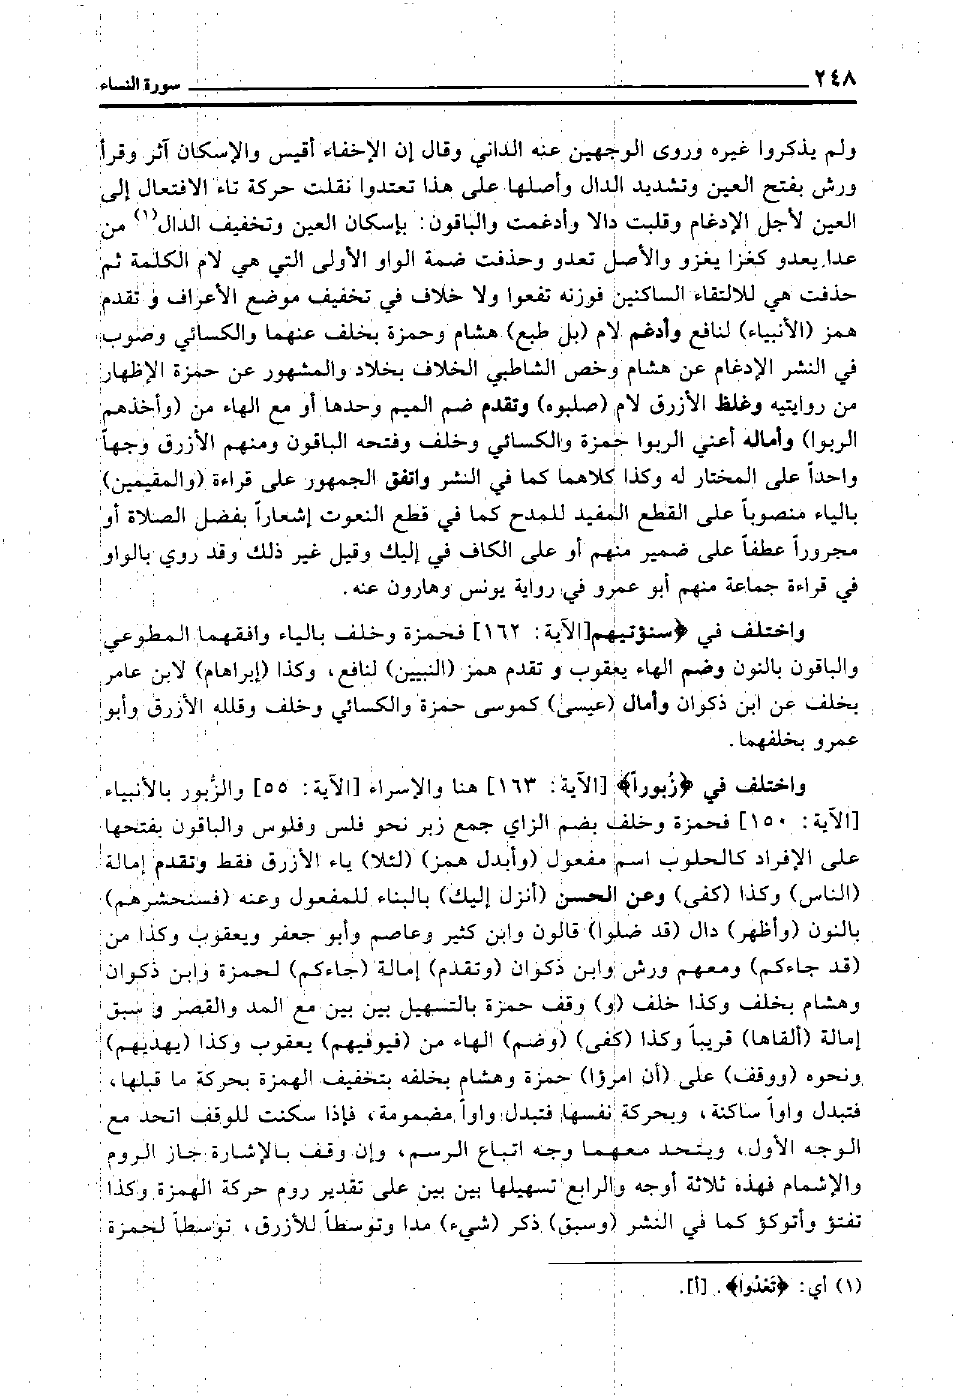 ٢٤٨ سورة النساء
ولم يذكروا غيره وروى الوجهين عنه الداني وقال إن الإخفاء أقيس والإسكان آثر وقرأ
ورش بفتح العين وتشديد الدال وأصلها على هذا تعتدوا نقلت حركة تاء الافتعال إلى
العين لأجل الإدغام وقلبت دالا وأدغمت والباقون: بإسكان العين وتخفيف الدال(١) من
عدا يعدو كغزا يغزو والأصل تعدو وحذفت ضمة الواو الأولى التي هي لام الكلمة ثم
حذفت هي للالتقاء الساكنين فوزنه تفعوا ولا خلاف في تخفيف موضع الأعراف و تقدم
همز (الأنبياء) لنافع وأدغم لام (بل طبع) هشام وحمزة بخلف عنهما والكسائي وصوب
في النشر الإدغام عن هشام وخص الشاطبي الخلاف بخلاد والمشهور عن حمزة الإظهار
من روايتيه وغلظ الأزرق لام (صلبوه) وتقدم ضم الميم وحدها أو مع الهاء من (وأخذهم
الربوا) وأماله أعني الربوا حمزة والكسائي وخلف وفتحه الباقون ومنهم الأزرق وجهاً
واحداً على المختار له وكذا كلاهما كما في النشر واتفق الجمهور على قراءة (والمقيمين)
بالياء منصوباً على القطع المفيد للمدح كما في قطع النعوت إشعاراً بفضل الصلاة أو
مجروراً عطفاً على ضمير منهم أو على الكاف في إليك وقيل غير ذلك وقد روي بالواو
في قراءة جماعة منهم أبو عمرو في رواية يونس وهارون عنه.
واختلف في ﴿سنؤتيهم[الآية: ١٦٢] فحمزة وخلف بالياء وافقهما المطوعي
والباقون بالنون وضم الهاء يعقوب و تقدم همز (النبيين) لنافع، وكذا (إبراهام) لابن عامر
بخلف عن ابن ذكوان وأمال (عيسى) كموسى حمزة والكسائي وخلف وقلله الأزرق وأبو
عمرو بخلفهما.
واختلف في ﴿زُبوراً﴾ [الآية: ١٦٣] هنا والإسراء [الآية: ٥٥] والزُبور بالأنبياء
[الآية: ١٥٠] فحمزة وخلف بضم الزاي جمع زبر نحو فلس وفلوس والباقون بفتحها
على الإفراد كالحلوب اسم مفعول (وأبدل همز) (لئلا) ياء الأزرق فقط وتقدم إمالة
(الناس) وكذا (كفى) وعن الحسن (أنزل إليك) بالبناء للمفعول وعنه (فسنحشرهم)
بالنون (وأظهر) دال (قد ضلوا) قالون وابن كثير وعاصم وأبو جعفر ويعقوب وكذا من
(قد جاءكم) ومعهم ورش وابن ذكوان (وتقدم) إمالة (جاءكم) لحمزة وابن ذكوان
وهشام بخلف وكذا خلف (و) وقف حمزة بالتسهيل بين بين مع المد والقصر و سبق
إمالة (ألقاها) قريباً وكذا (كفى) (وضم) الهاء من (فيوفيهم) يعقوب وكذا (يهديهم)
ونحوه (ووقف) على (أن امرؤا) حمزة وهشام بخلفه بتخفيف الهمزة بحركة ما قبلها،
فتبدل واواً ساكنة، وبحركة نفسها فتبدل واواً مضمومة، فإذا سكنت للوقف اتحد مع
الوجه الأول، ويتحد معهما وجه اتباع الرسم، وإن وقف بالإشارة جاز الروم
والإشمام فهذه ثلاثة أوجه والرابع تسهيلها بين بين على تقدير روم حركة الهمزة وكذا
تفتؤ وأتوكؤ كما في النشر (وسبق) ذكر (شيء) مدا وتوسطاً للأزرق، توسطاً لحمزة
(١) أي: ﴿تَعْدُوا﴾. [أ].